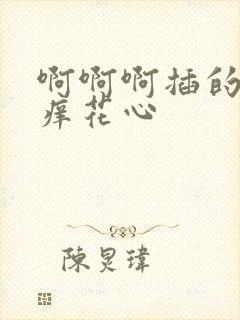 啊啊啊插的
痒花心
陳炅瑋